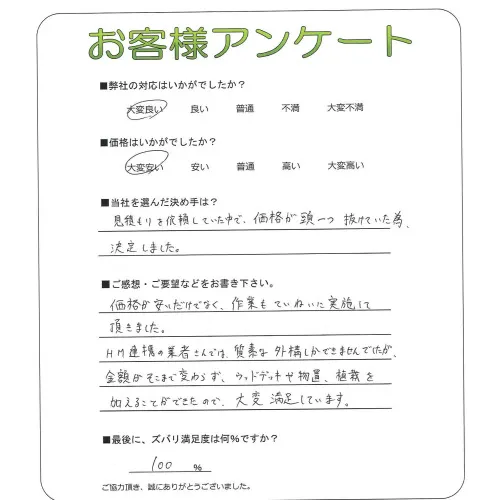 お客様アンケート
■弊社の対応はいかがでしたか?
大変良い 良い 普通 不満 大変不満
■価格はいかがでしたか?
大変安い 安い 普通 高い 大変高い
■当社を選んだ決め手は?
見積もりを依頼していた中で、価格が頭一つ抜けていた為、
決定しました。
■ご感想・ご要望などをお書き下さい。
価格が安いだけでなく、作業もていねいに実施して
頂きました。
HM連携の業者さんでは、質素な外構しかできませんでしたが、
金額がそこまで変わらず、ウッドデッキや物置、植栽を
加えることができたので、大変満足しています。
■最後に、ズバリ満足度は何%ですか?
100 %
ご協力頂き、誠にありがとうございました。